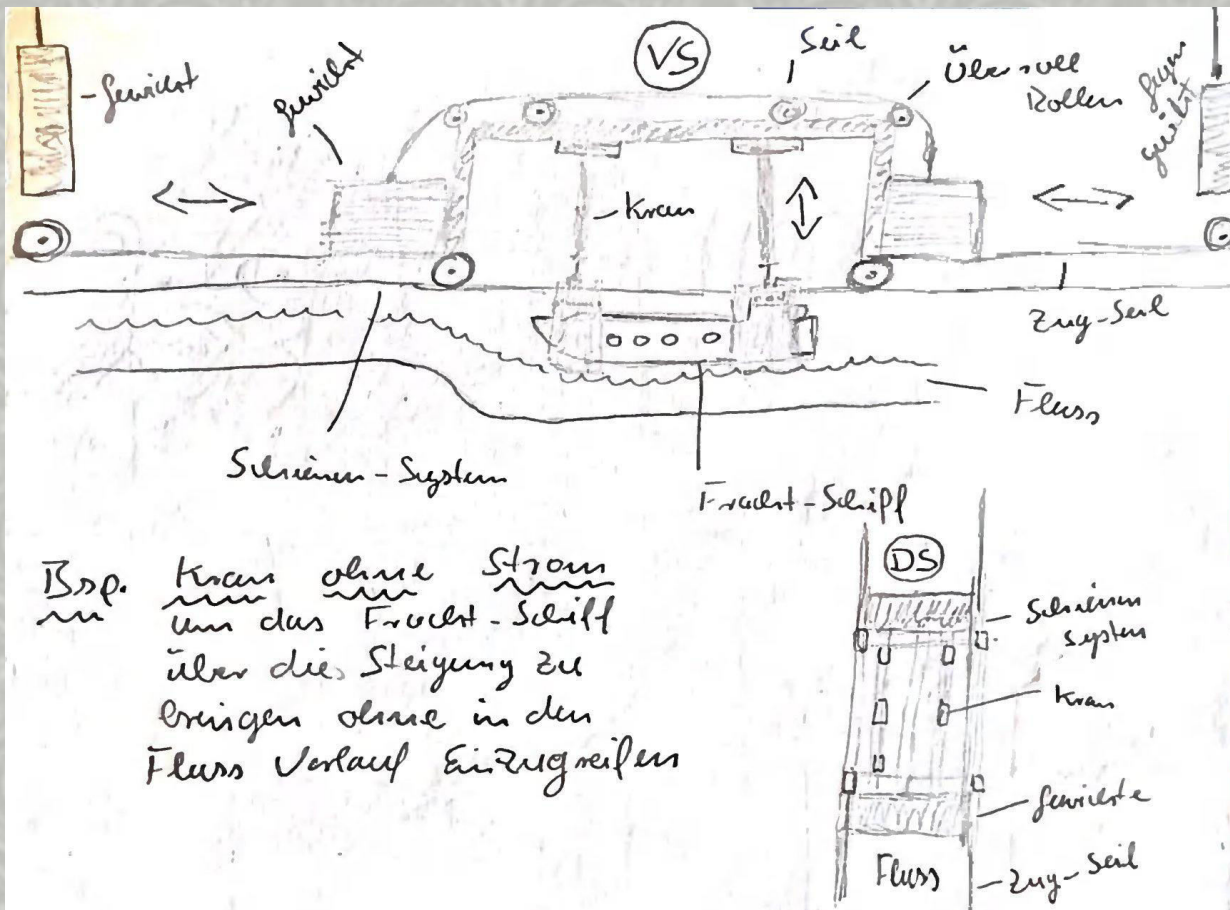 Gewicht
Gewicht
VS
Seil
Überroll
Rollen
Gegen
gewicht
Kran
Zug-Seil
Fluss
Schienen-System
Fracht-Schiff
Bsp. Kran ohne Strom
um das Fracht-Schiff
über die Steigung zu
bringen ohne in den
Fluss Verlauf Einzugreifen
DS
Schienen
system
Kran
Gewichte
Fluss
Zug-Seil